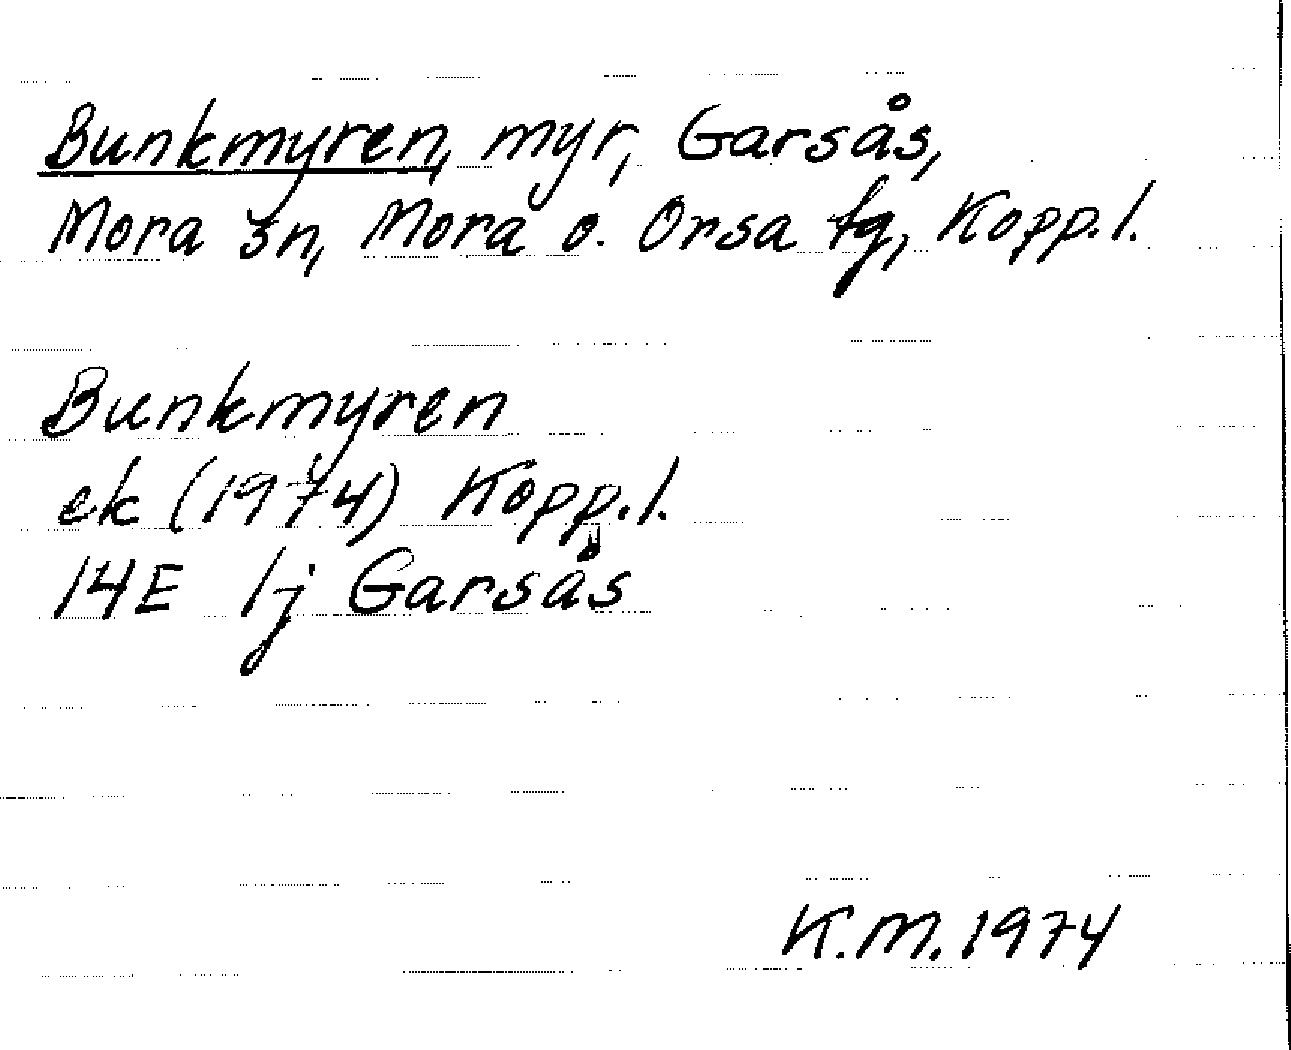 Bunkmyren, myr, Garsås,
Mora sn, Mora o. Orsa tg, Kopp.l.
Bunkmyren
ek (1974) Kopp.l.
14E 1j Garsås
K.M. 1974